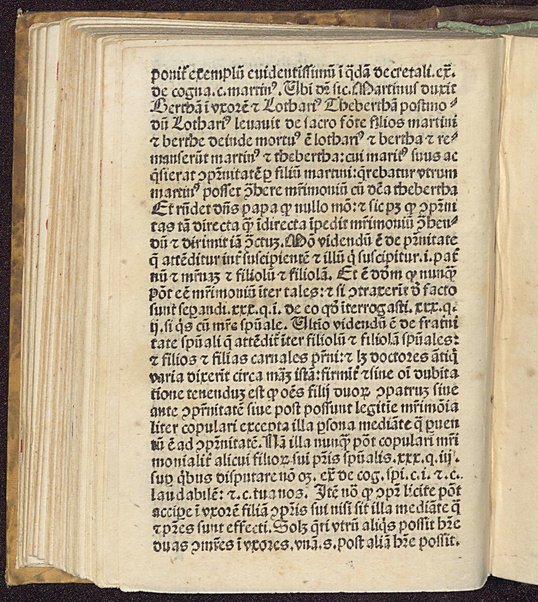 ponit᷑ exemplū euidentissimū ī qdā decretali. ex̄.
de cogna.c.martin⁹. Ubi dr̄ sic. Martinus duxit
Berthā ī vxorē ⁊ Lothari⁹ Thebertha postmo⸗
dū Lothari⁹ leuauit de sacro fōte filios martini
⁊ berthe deinde mortu⁹ ē lothari⁹ ⁊ bertha ⁊ re⸗
manserūt martin⁹ ⁊ thebertha: cui marit⁹ suus ac
q̄sierat ꝯpr̄nitatē ꝑ filiū martini: q̄rebatur vtrum
martin⁹ posset ꝯ̄here mr̄imoniū cū dc̄a thebertha
Et rn̄det dn̄s papa ꝙ nullo mō: ⁊ sic pꝫ ꝙ ꝯpr̄ni
tas tā directa q̄ƺ idirecta īpedit mr̄imoniū ꝯ̄hen⸗
dū ⁊ dirimit iā ꝯ̄ctuꝫ. Mō videndū ē de pr̄nitate
q̄ attēditur int᷑ suscipientē ⁊ illū q̄ suscipitur .i. pat᷑
nū ⁊ mr̄naꝫ ⁊ filiolū ⁊ filiolā. Et ē dōm ꝙ nunq̄ƺ
pōt eē mr̄imoniū īter tales: ⁊ si ꝯtraxerīt ð facto
sunt sepandi .xxx.q.i. de eo qð īterrogasti .xxx.q.
ij. si q̄s cū mr̄e spūale. Ultīo videndū ē de frat᷑ni
tate spūali q̄ attēdit᷑ īter filiolū ⁊ filiolā spūales:
⁊ filios ⁊ filias carnales pr̄ni: ⁊ lꝫ doctores ātiq̄
varia dixerīt circa māꝫ istā: firmit᷑ ⁊ sine oī dubita
tione tenenduꝫ est ꝙ oēs filij duoꝝ ꝯpatruꝫ siue
ante ꝯpr̄nitatē siue post possunt legitīe mr̄imōia
liter copulari excepta illa ꝑsona mediāte q̄ ꝑuen
tū ē ad ꝯpr̄nitatē. Nā illa nunq̄ƺ pōt copulari mr̄i
monialit᷑ alicui filioꝝ sui pr̄is spūalis .xxx.q.iij.
sup q̄bus disputare nō oꝫ. ex̄ de cog. spi.c.i. ⁊.c.
laudabilē: ⁊.c. tua nos. Itē nō ꝙ ꝯpr̄ licite pōt
accipe ī vxorē filiā ꝯpr̄is sui nisi sit illa mediāte q̄
⁊ pr̄es sunt effecti. Solꝫ q̄ri vtrū aliq̄s possit hr̄e
duas ꝯmr̄es ī vxores. vnā.s. post aliā hr̄e possit.